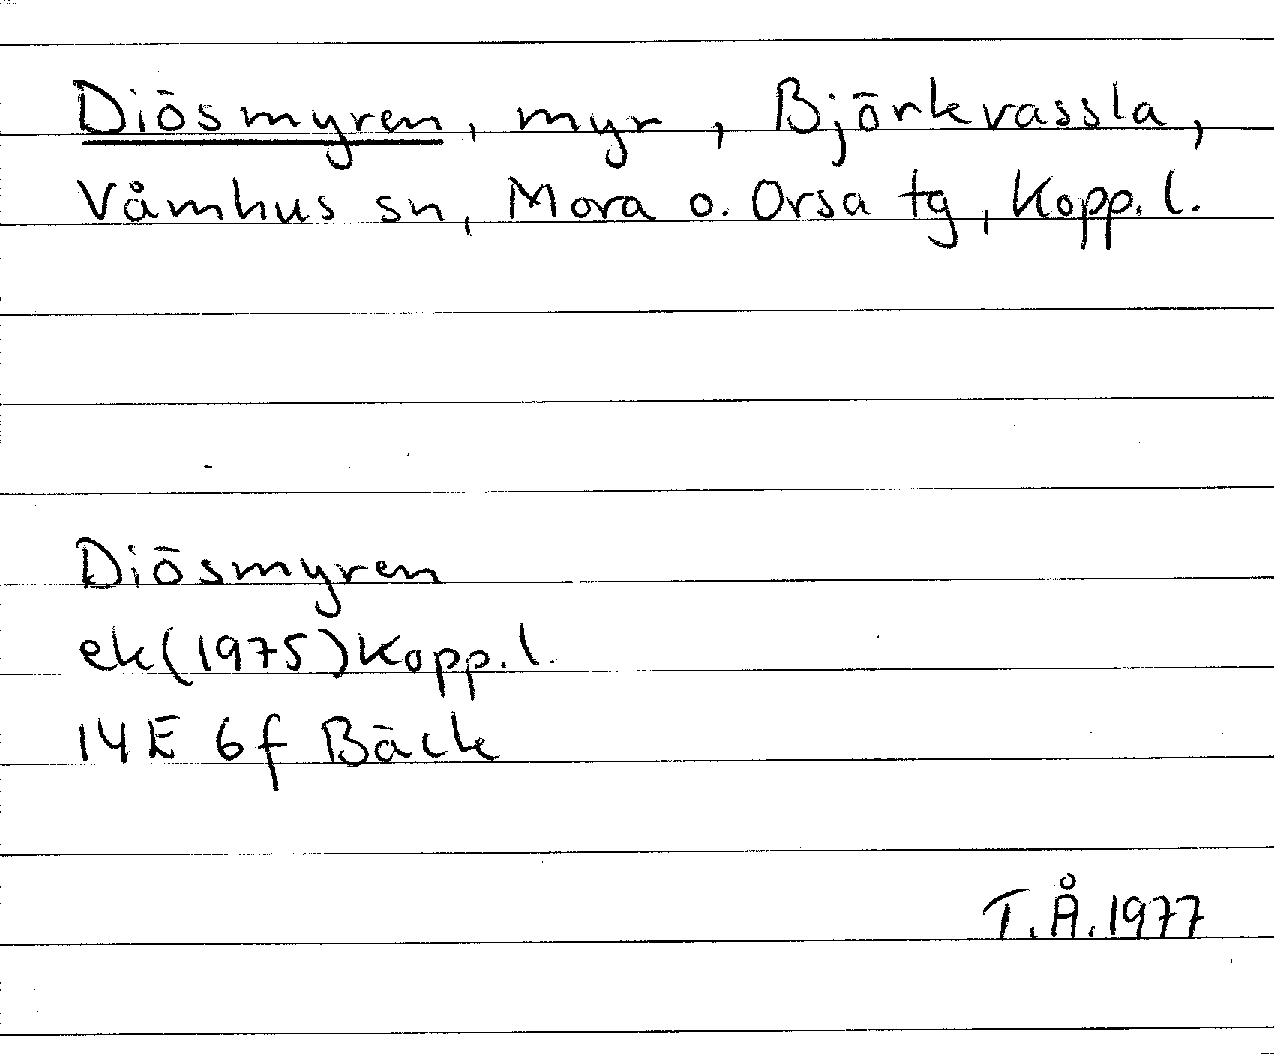 Diösmyren, myr, Björkvassla,
Våmhus sn, Mora o. Orsa tg, Kopp. l.
Diösmyren
ek(1975)Kopp. l.
14E 6f Bäck
T.Å.1977